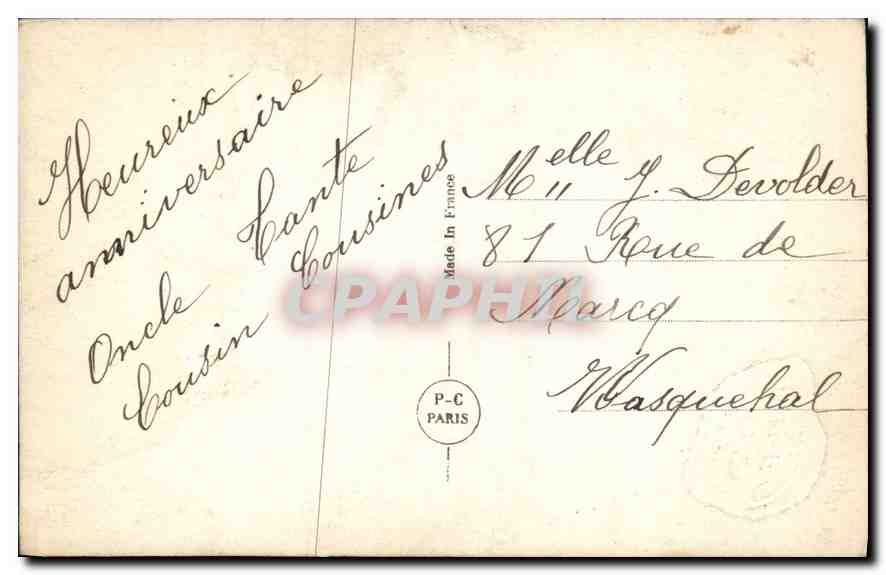 Heureux
anniversaire
Oncle Tante
Cousin Cousines
Made In France
P-C
PARIS
CPAPHIL
Melle J. Devolder
81 Rue de
Marcq
Wasquehal